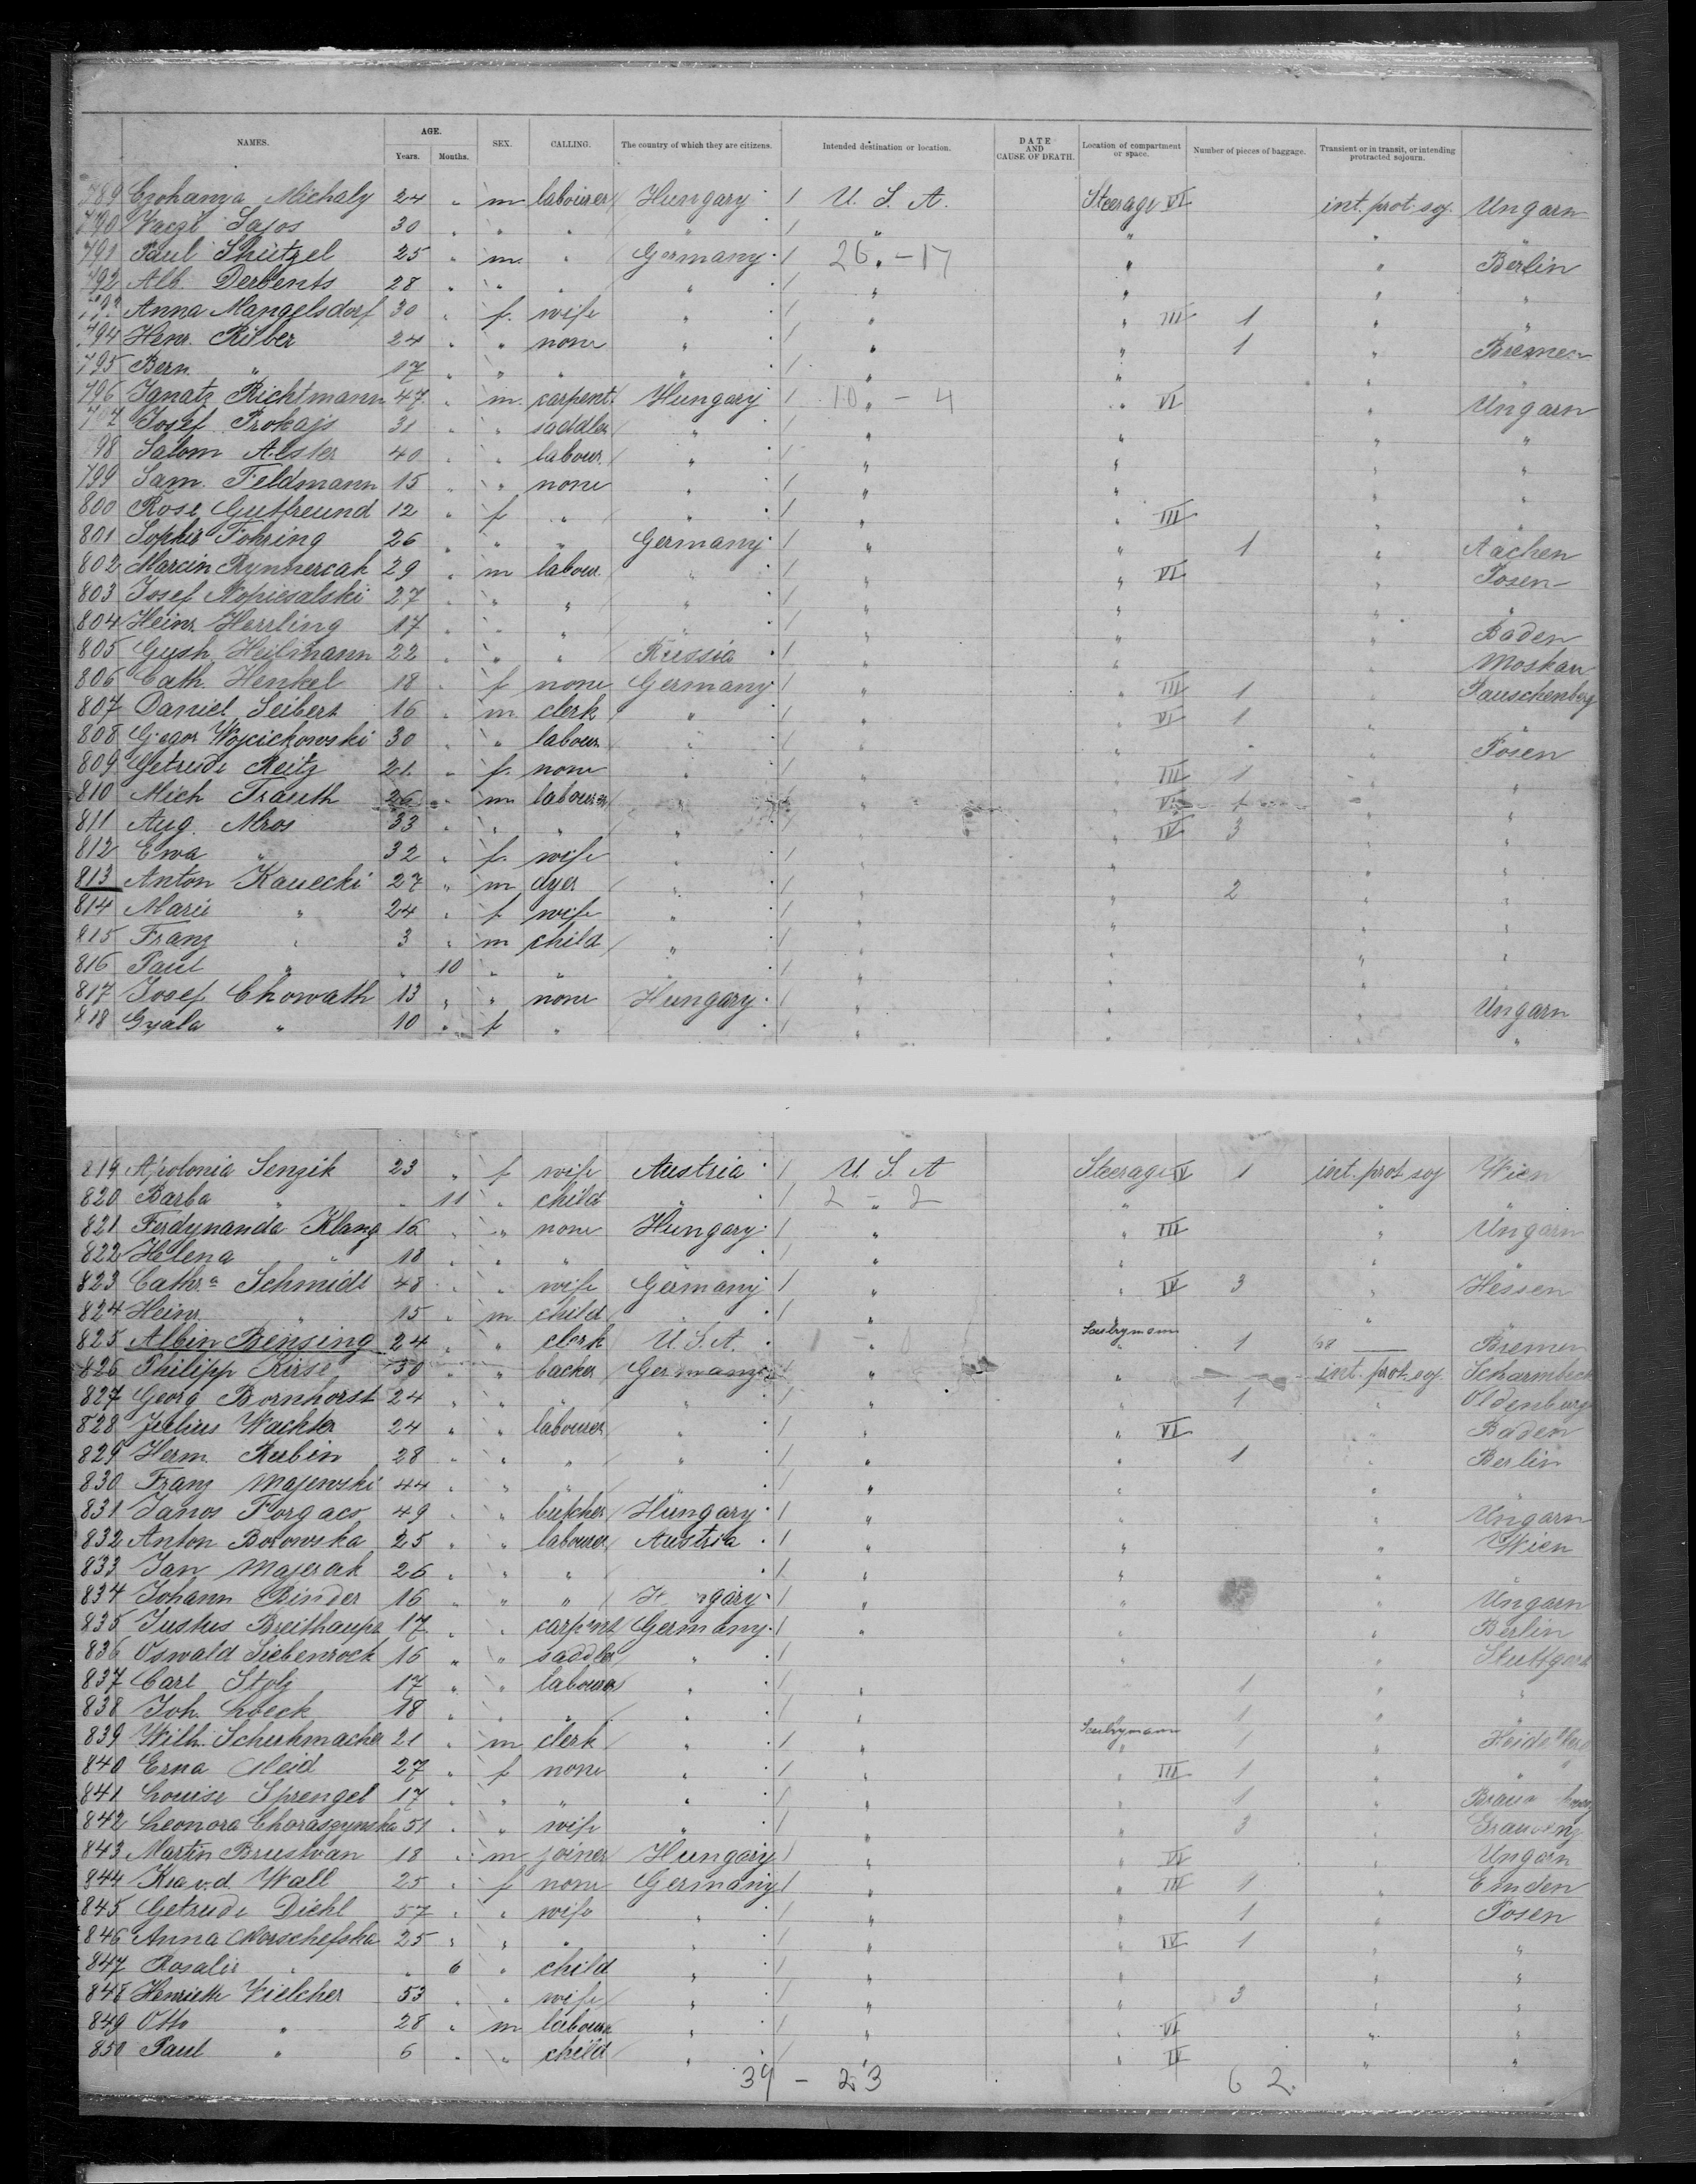 NAMES. AGE. Years. Months. SEX. CALLING. The country of which they are citizens. Intended destination or location. DATE AND CAUSE OF DEATH. Location of compartment or space. Number of pieces of baggage. Transient or in transit, or intending protracted sojourn.
789 Czohanya Michaly 24 " m labourer Hungary / U. S. A. Steerage VI int. prot soj. Ungarn
790 Vaczi Lajos 30 " " " " / " " " "
791 Paul Shützel 25 " m " Germany / 26 " - 17 " " Berlin
792 Alb. Derbents 28 " " " " / " " " "
793 Anna Mangelsdorf 30 " f. wife " / " " III 1 " "
794 Henr. Rilber 24 " " none " / " " 1 " Bremen
795 Bern. " 17 " " " " / " " " "
796 Ignatz Richtmann 47 " m. carpent. Hungary / 10 " - 4 " VI " Ungarn
797 Josef Prokajs 31 " " saddler " / " " " "
798 Salom Alster 40 " " labour. " / " " " "
799 Sam. Feldmann 15 " " none " / " " " "
800 Rosi Gutfreund 12 " f " " / " " III " "
801 Sophie Fohring 26 " " " Germany / " " 1 " Aachen
802 Marcin 29 " m labour " / " " VI " Posen
803 Josef 27 " " " " / " " " "
804 Heinr. Herrling 17 " " " " / " " " Baden
805 Gush. Heilmann 22 " " " Russia / " " " Moskau
806 Cath. Henkel 18 " f none Germany / " " III 1 " Rauschenberg
807 Daniel Seibert 16 " m clerk " / " " VI 1 "
808 Gregor Wojcickowski 30 " " labour. " / " " " " Posen
809 Getrude Reitz 21 " f. none " / " " III 1 " "
810 Mich Trauth 26 " m labourer " / " " VI 1 " "
811 Aug. Mros 33 " " " " / " " IV 3 " "
812 Ewa " 32 " f. wife " / " " " "
813 Anton Kauecki 27 " m dyer " / " " 2 " "
814 Marie " 24 " f wife " / " " " "
815 Franz " 3 " m child " / " " " "
816 Paul " " 10 " " " / " " " "
817 Josef Chowath 13 " " none Hungary / " " " Ungarn
818 Gyala " 10 " f " " / " " " "
819 Apolonia Senzik 23 " f wife Austria / U. S. A Steerage IV 1 int. prot soj Wien
820 Barba " " 11 " child " / 2 " - 2 " " "
821 Ferdynanda Klang 16 " " none Hungary / " " III " Ungarn
822 Helena " 18 " " " " / " " " "
823 Cathra Schmidt 48 " " wife Germany / " " IV 3 " Hessen
824 Heinr. " 15 " m child " / " " " "
825 Albin Bensing 24 " " clerk U. S. A. 1 - 0 1 68 Bremen
826 Philipp Kirse 30 " " backer Germany / " " int. prot soj. Scharmbeck
827 Georg Bornhorst 24 " " " " / " " 1 " Oldenburg
828 Julius Wachter 24 " " labourer " / " " VI " Baden
829 Herm. Rubin 28 " " " " / " " 1 " Berlin
830 Franz Majewski 44 " " " " / " " " "
831 Janos Forgacs 49 " " butcher Hungary / " " " Ungarn
832 Anton Borowska 25 " " labourer Austria / " " " Wien
833 Jan Majerak 26 " " " " / " " " "
834 Johann Binder 16 " " " Hungary / " " " Ungarn
835 Justus Breithaupt 17 " " carpent Germany / " " " Berlin
836 Oswald Siebenrock 16 " " saddler " / " " " Stuttgart
837 Carl Stolz 17 " " labourer " / " 1 " "
838 Joh. Loeck 18 " " " " / " " 1 " "
839 Wilh. Schuhmacher 21 " m clerk " / " " 1 " Heidelberg
840 Erna Meid 27 " f none " / " " III 1 " "
841 Louise Sprengel 17 " " " " / " " 1 "
842 Leonora Choraszynska 51 " " wife " / " " 3 " Graudenz
843 Martin Brustvan 18 " m joiner Hungary / " " VI " Ungarn
844 v. d. Wall 25 " f none Germany / " " III 1 " Emden
845 Getrude Diehl 57 " " wife " / " " 1 " Posen
846 Anna Worschefska 25 " " " " / " " IV 1 " "
847 Rosalie " " 6 " child " / " " " "
848 Henriette Vielcher 53 " " wife " / " " 3 " "
849 Otto " 28 " m labourer " / " " VI " "
850 Paul " 6 " " child " / " " IV " "
39 - 23 62.